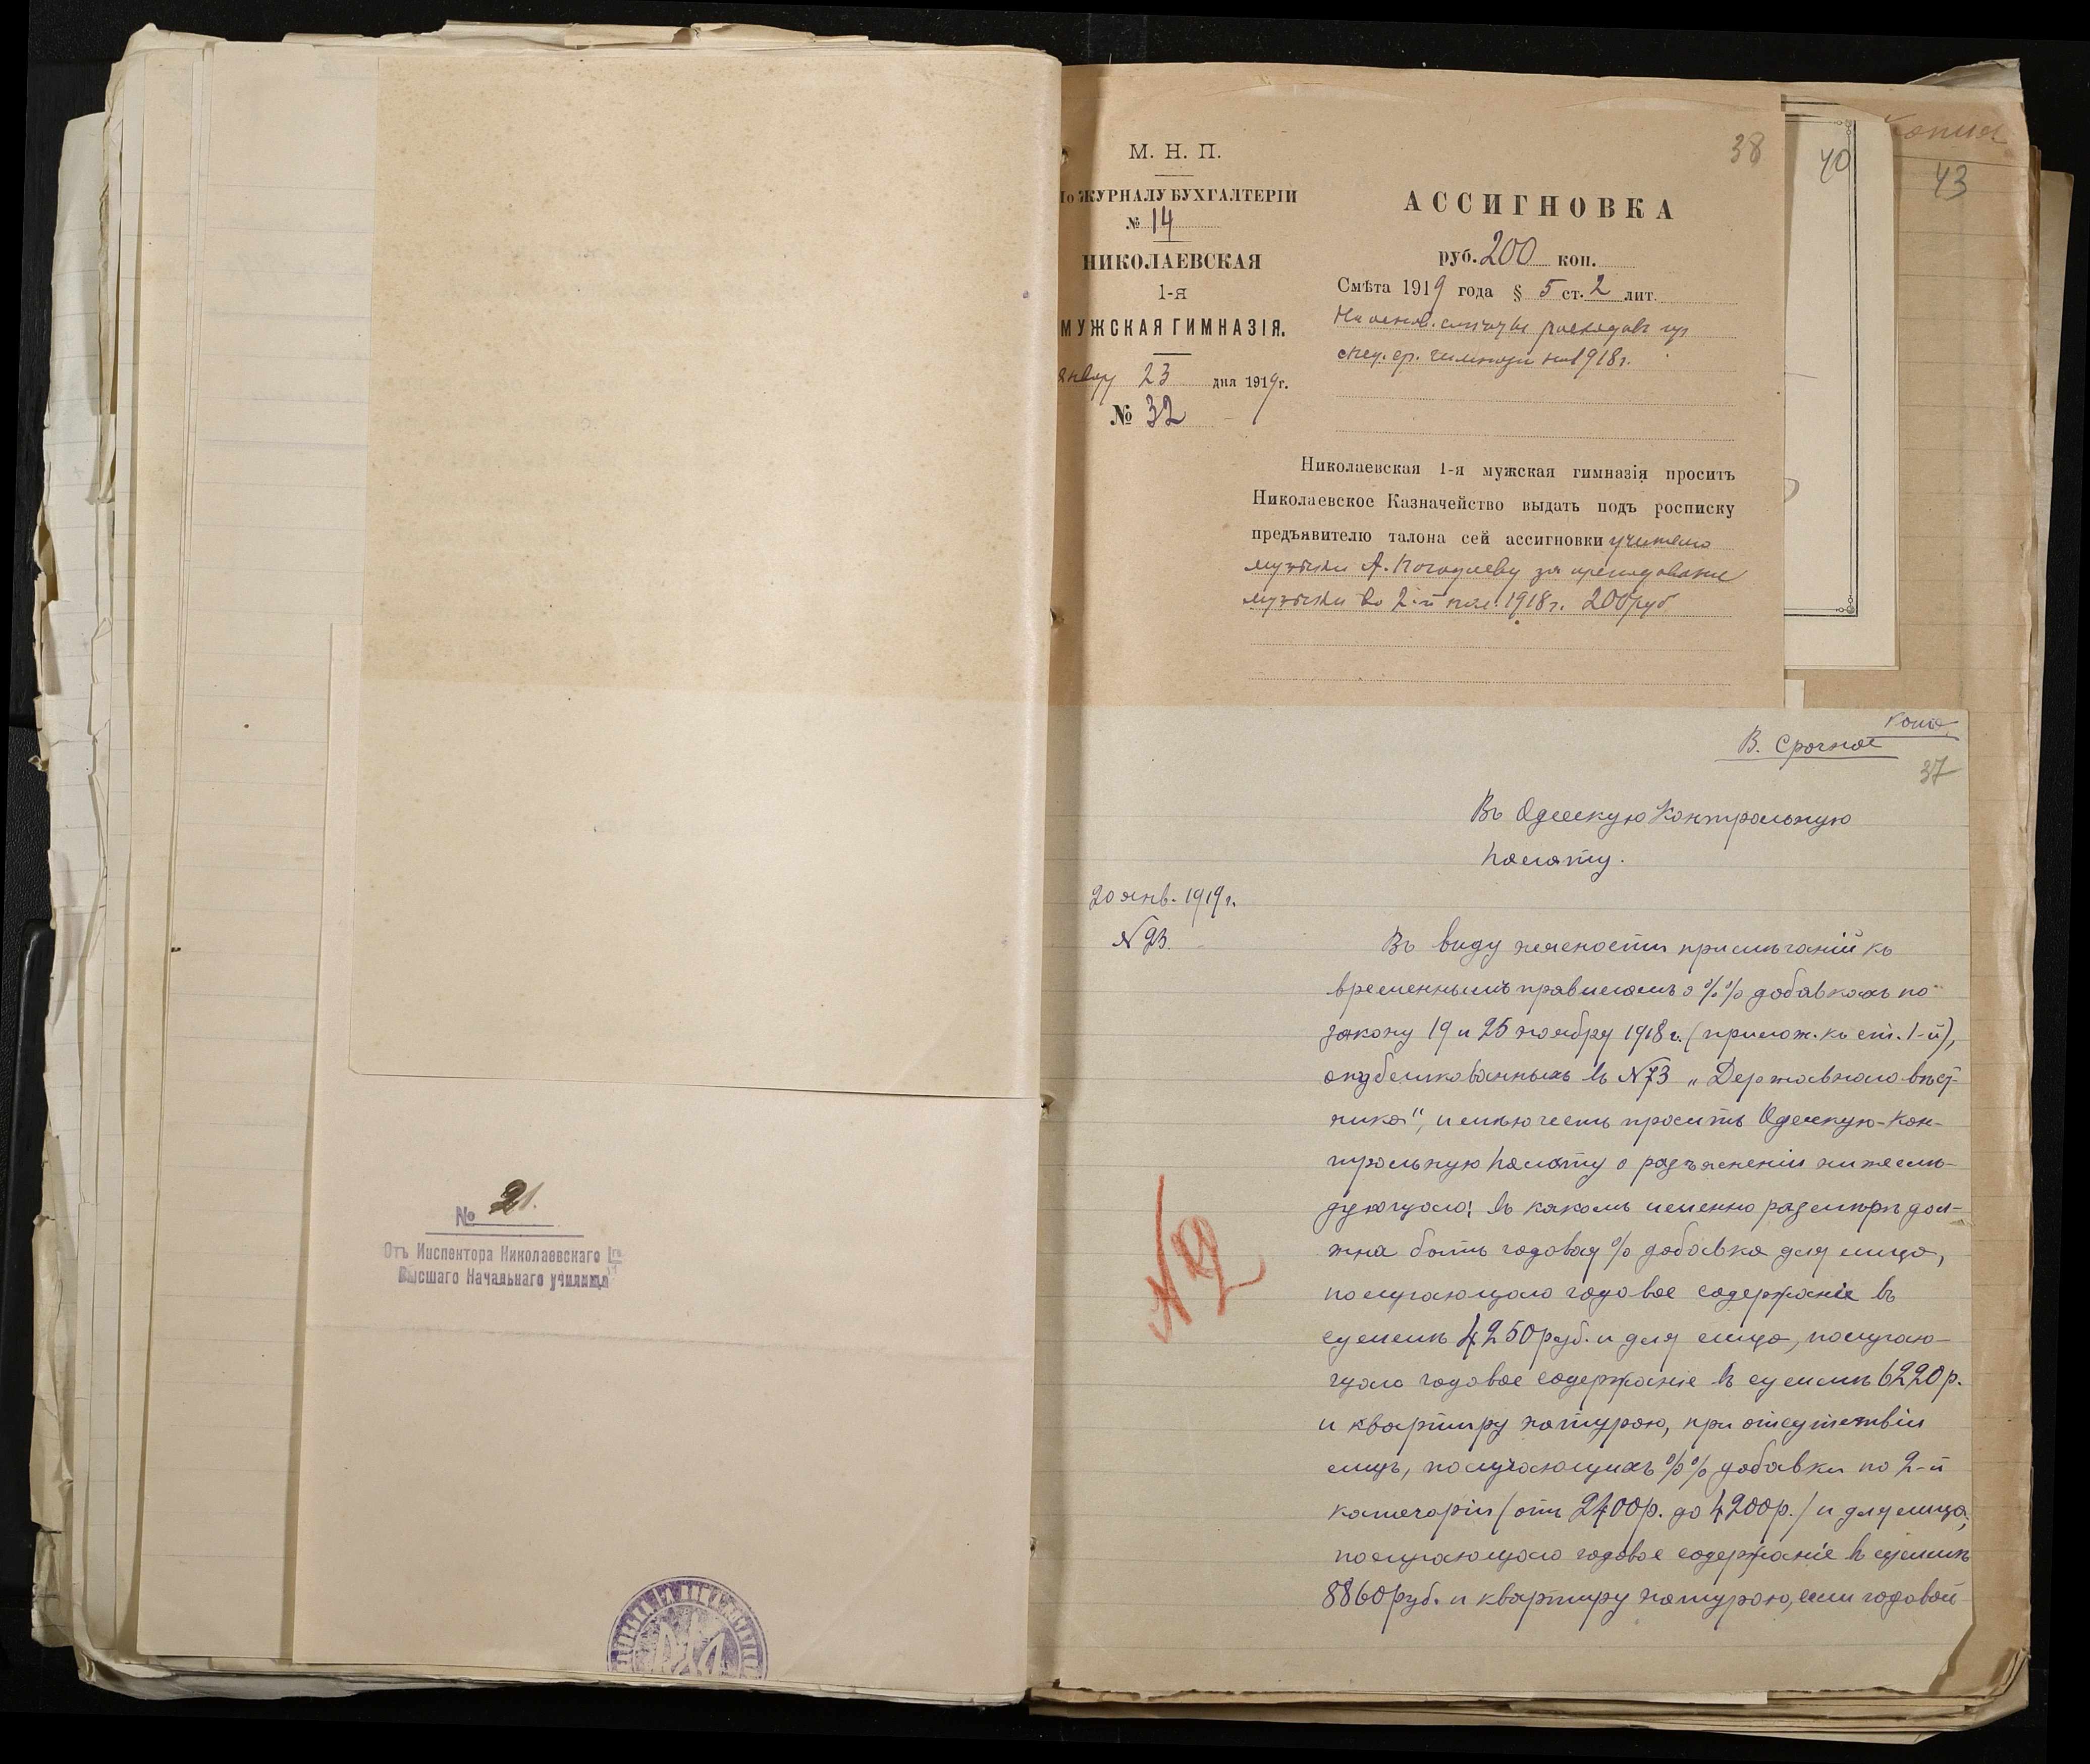 № 21.
Отъ Инспектора Николаевскаго 1го
Высшаго Начальнаго училища
М. Н. П.
По ЖУРНАЛУ БУХГАЛТЕРІИ
№ 14
НИКОЛАЕВСКАЯ
1-я
МУЖСКАЯ ГИМНАЗІЯ.
23 дня 1919 г.
№ 32
38
АССИГНОВКА
руб. 200 коп.
Смѣта 1919 года § 5 ст. 2 лит.
На основ. смѣты расходовъ из
спец. ср. гимназіи на 1918 г.
Николаевская 1-я мужская гимназія проситъ
Николаевское Казначейство выдать подъ росписку
предъявителю талона сей ассигновки учителю
музыки А. Погодаеву за преподаваніе
музыки во 2-й пол. 1918 г. 200 руб.
40
Копия
43
Копія
В. Срочное
37
Въ Одесскую Контрольную
Палату.
20 янв. 1919 г.
№ 93.
№ 2
Въ виду неясности примѣчаній къ
временнымъ правиламъ о %% добавкахъ по
закону 19 и 25 ноября 1918 г. (прилож. къ ст. 1-й),
опубликованныхъ въ № 73 „Державнаго вѣст-
ника", имѣю честь просить Одесскую Кон-
трольную Палату о разъясненіи нижеслѣ-
дующаго: въ какомъ именно размѣрѣ дол-
жна быть годовая % добавка для лица,
получающаго годовое содержаніе въ
суммѣ 4250 руб. и для лица, получаю-
щаго годовое содержаніе въ суммѣ 6220 р.
и квартиру натурою, при отсутствіи
лицъ, получающихъ %% добавки по 2-й
категоріи (отъ 2400 р. до 4200 р.) и для лица,
получающаго годовое содержаніе въ суммѣ
8860 руб. и квартиру натурою, если годовой